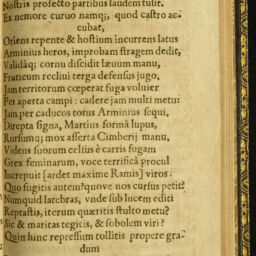 Nostris profecto partibus laudem tulit.
Ex nemore curuo namq;, quod castro ac-
cubat,
Oriens repente & hostium incurrens latus
Arminius heros, improbam stragem dedit,
Validáq; cornu discidit læuum manu,
Fraticum recliui terga defensus jugo,
Jam territorum cœperat fuga voluier
Per aperta campi: cadere jam multi metu:
Jam per caducos totus Arminius sequi,
Direpta signa, Martius formâ lupus,
Rursumq; mox asserta Cimberij manu,
Videns suorum celsus è carris fugam
Grex feminarum, voce terrificâ procul
Increpuit [ardet maxime Ramis] viros.
Quo fugitis autem? quove nos cursus petit?
Numquid latebras, vnde sub lucem editi
Reptastis, iterum quæritis stulto metu?
Sic & maritas tegitis, & sobolem viri?
Quin hinc repressum tollitis propere gra-
dum